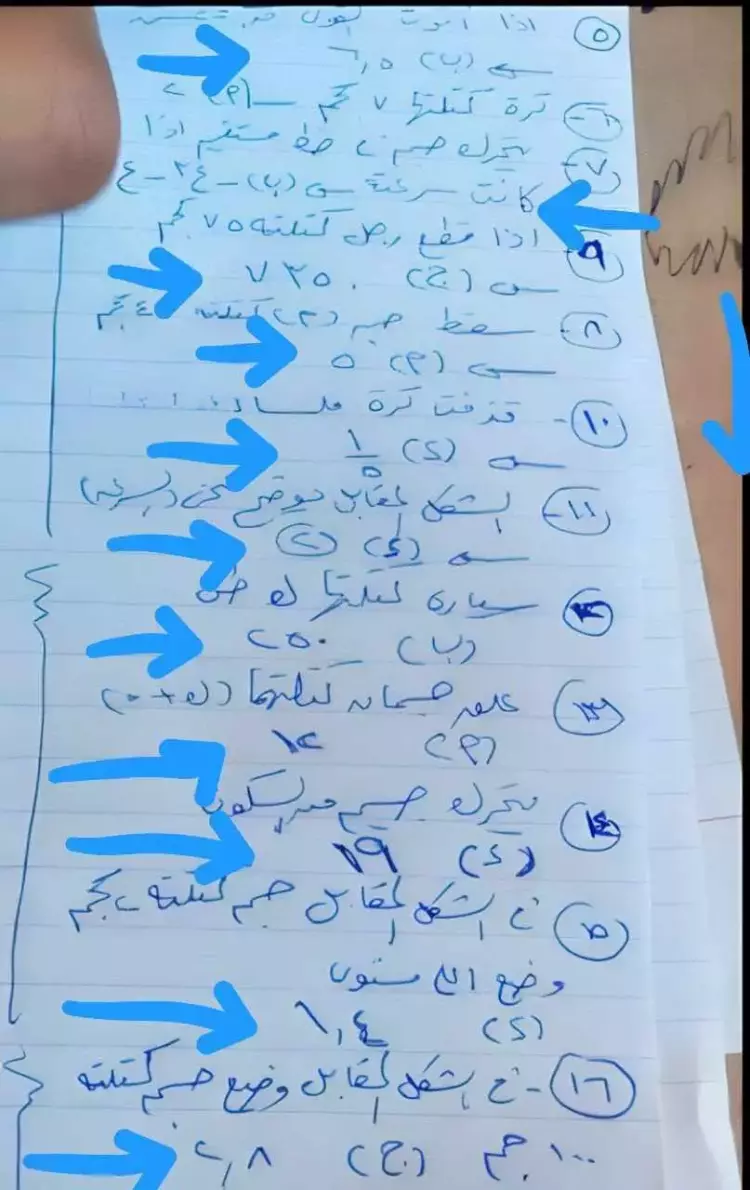 ٥ اذا
← (ب) ٦,٥
٦- كرة كتلتها ٧ كجم ← (م) ٢
٧- يتحرك جسم في خط مستقيم اذا
كانت سرعة ← (ب) - ع٢ - ع
٩ اذا قطع رجل كتلته ٧٥ كجم
← (ج) ٧٣٥٠
٨- سقط جسم (م) كتلته كجم
← (م) ٥
١٠- قذفت كرة ملساء
← (د) ١/٥
١١- الشكل المقابل يوضح منحنى (السرعة)
← (د) ٢
١٢ سيارة كتلتها ك
(ب) ٢٥٠
١٣ علق جسمان كتلتهما (ك + ٥)
(م) ١٢
١٤ يتحرك جسم من السكون
(د) ١٩
١٥ في الشكل المقابل جسم كتلته ٢ كجم
وضع على مستوى
(د) ١,٤
١٦- في الشكل المقابل وضع جسم كتلته
١٠٠ جم (ج) ٢,٨